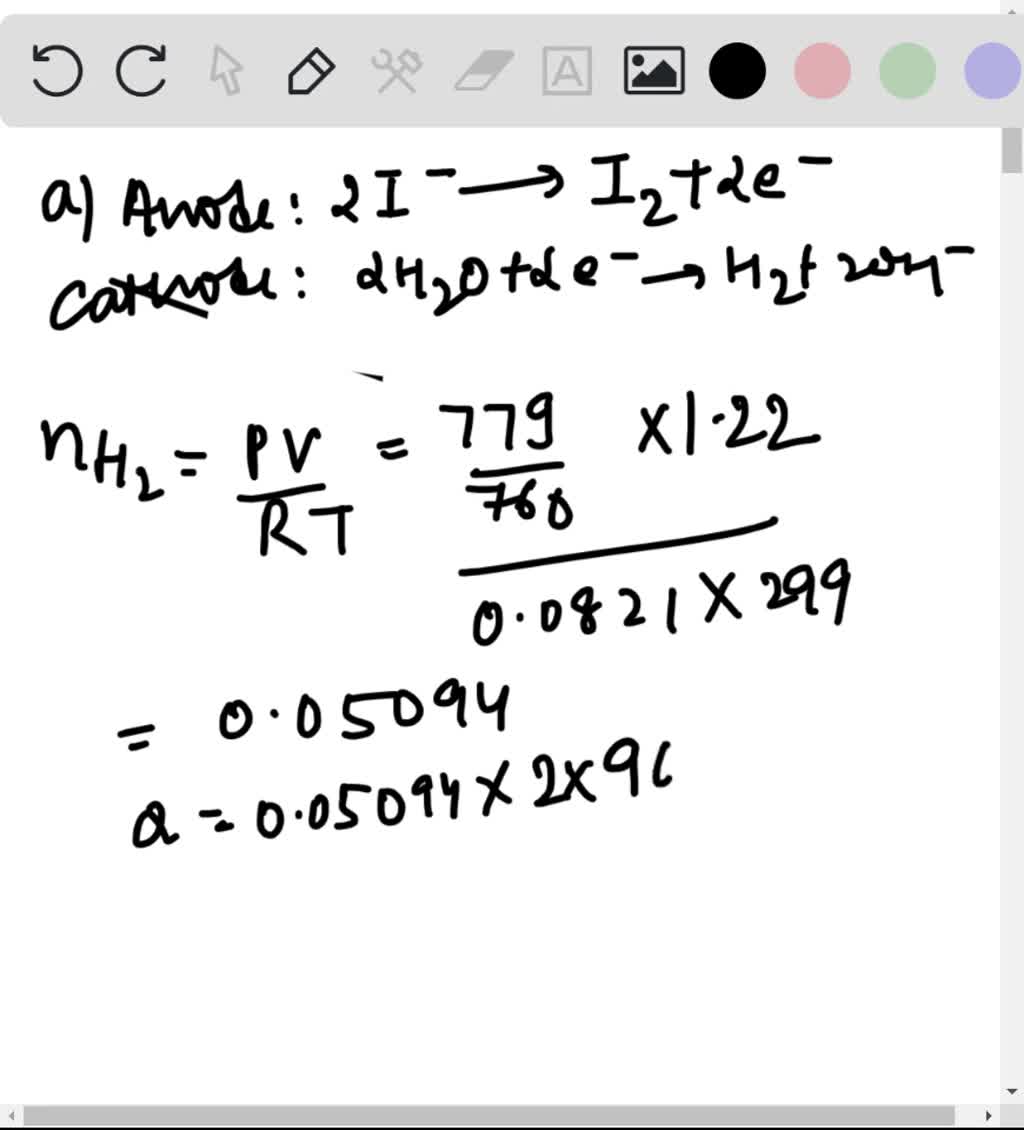 a) Anode: 2I⁻ → I₂+2e⁻
Cathode: 2H₂O+2e⁻ → H₂+2OH⁻
nH₂ = PV/RT = (779/760 X1.22)/(0.0821X299)
= 0.05094
Q = 0.05094X2X96
A